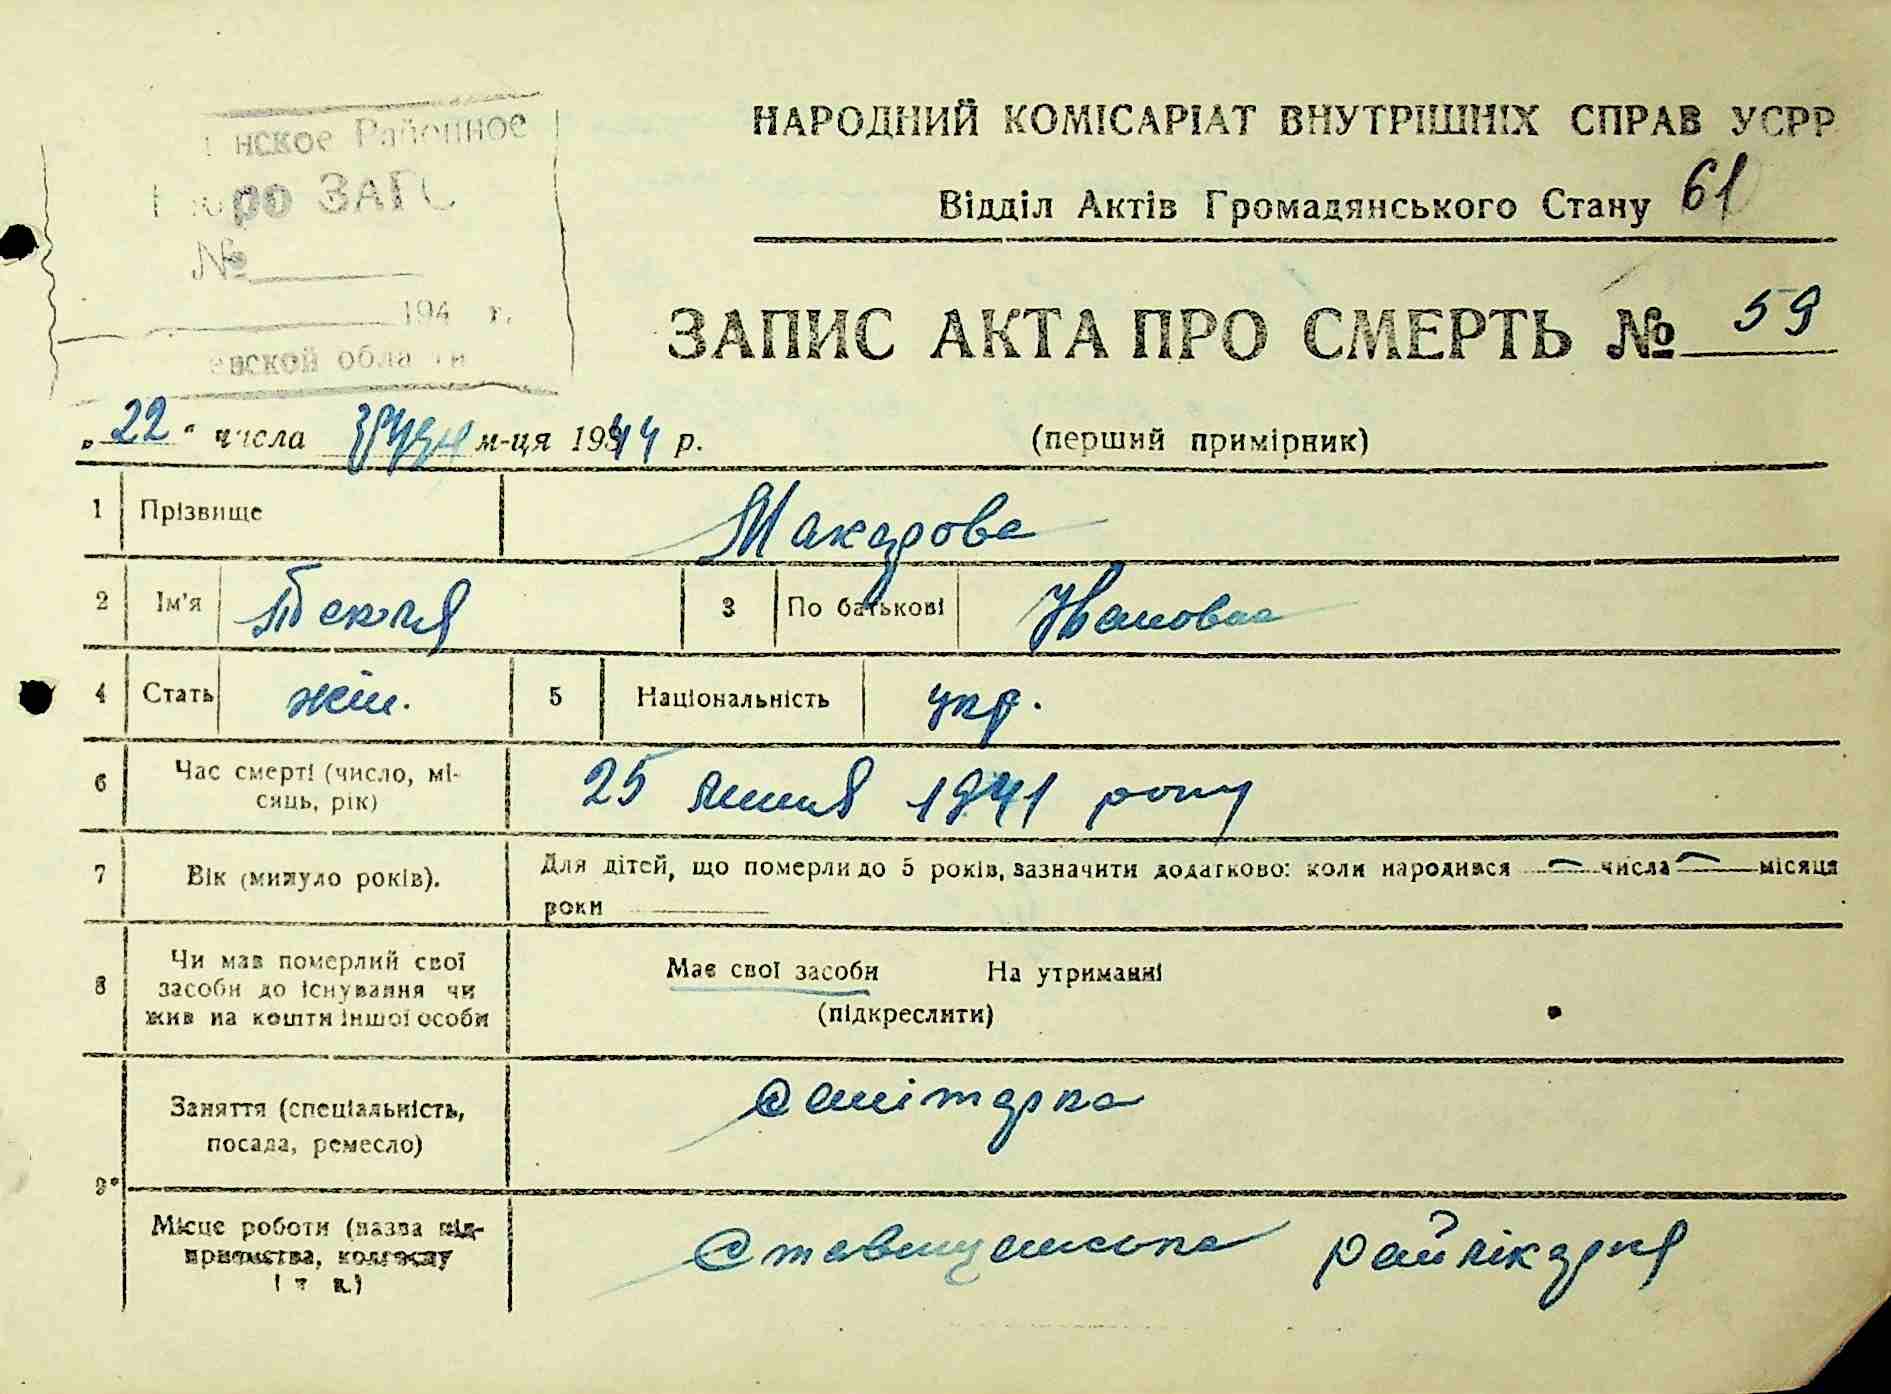 нское Районное
ро ЗАГС
№
194 г.
евской области
НАРОДНИЙ КОМІСАРІАТ ВНУТРІШНІХ СПРАВ УСРР
Відділ Актів Громадянського Стану 61
ЗАПИС АКТА ПРО СМЕРТЬ № 59
„22“ числа грудн м-ця 1944 р. (перший примірник)
1 Прізвище Макарова
2 Ім'я Текля 3 По батькові Ивановна
4 Стать жін. 5 Національність укр.
6 Час смерті (число, мі-
сяць, рік) 25 липня 1941 року
7 Вік (минуло років). Для дітей, що померли до 5 років, зазначити додатково: коли народився — числа — місяця
роки
8 Чи мав померлий свої
засоби до існування чи
жив на кошти іншої особи
Має свої засоби На утриманні
(підкреслити)
9 Заняття (спеціальність,
посада, ремесло) Санітарка
Місце роботи (назва під-
приємства, колгоспу
і т. п.) Ставищанська райлікарня